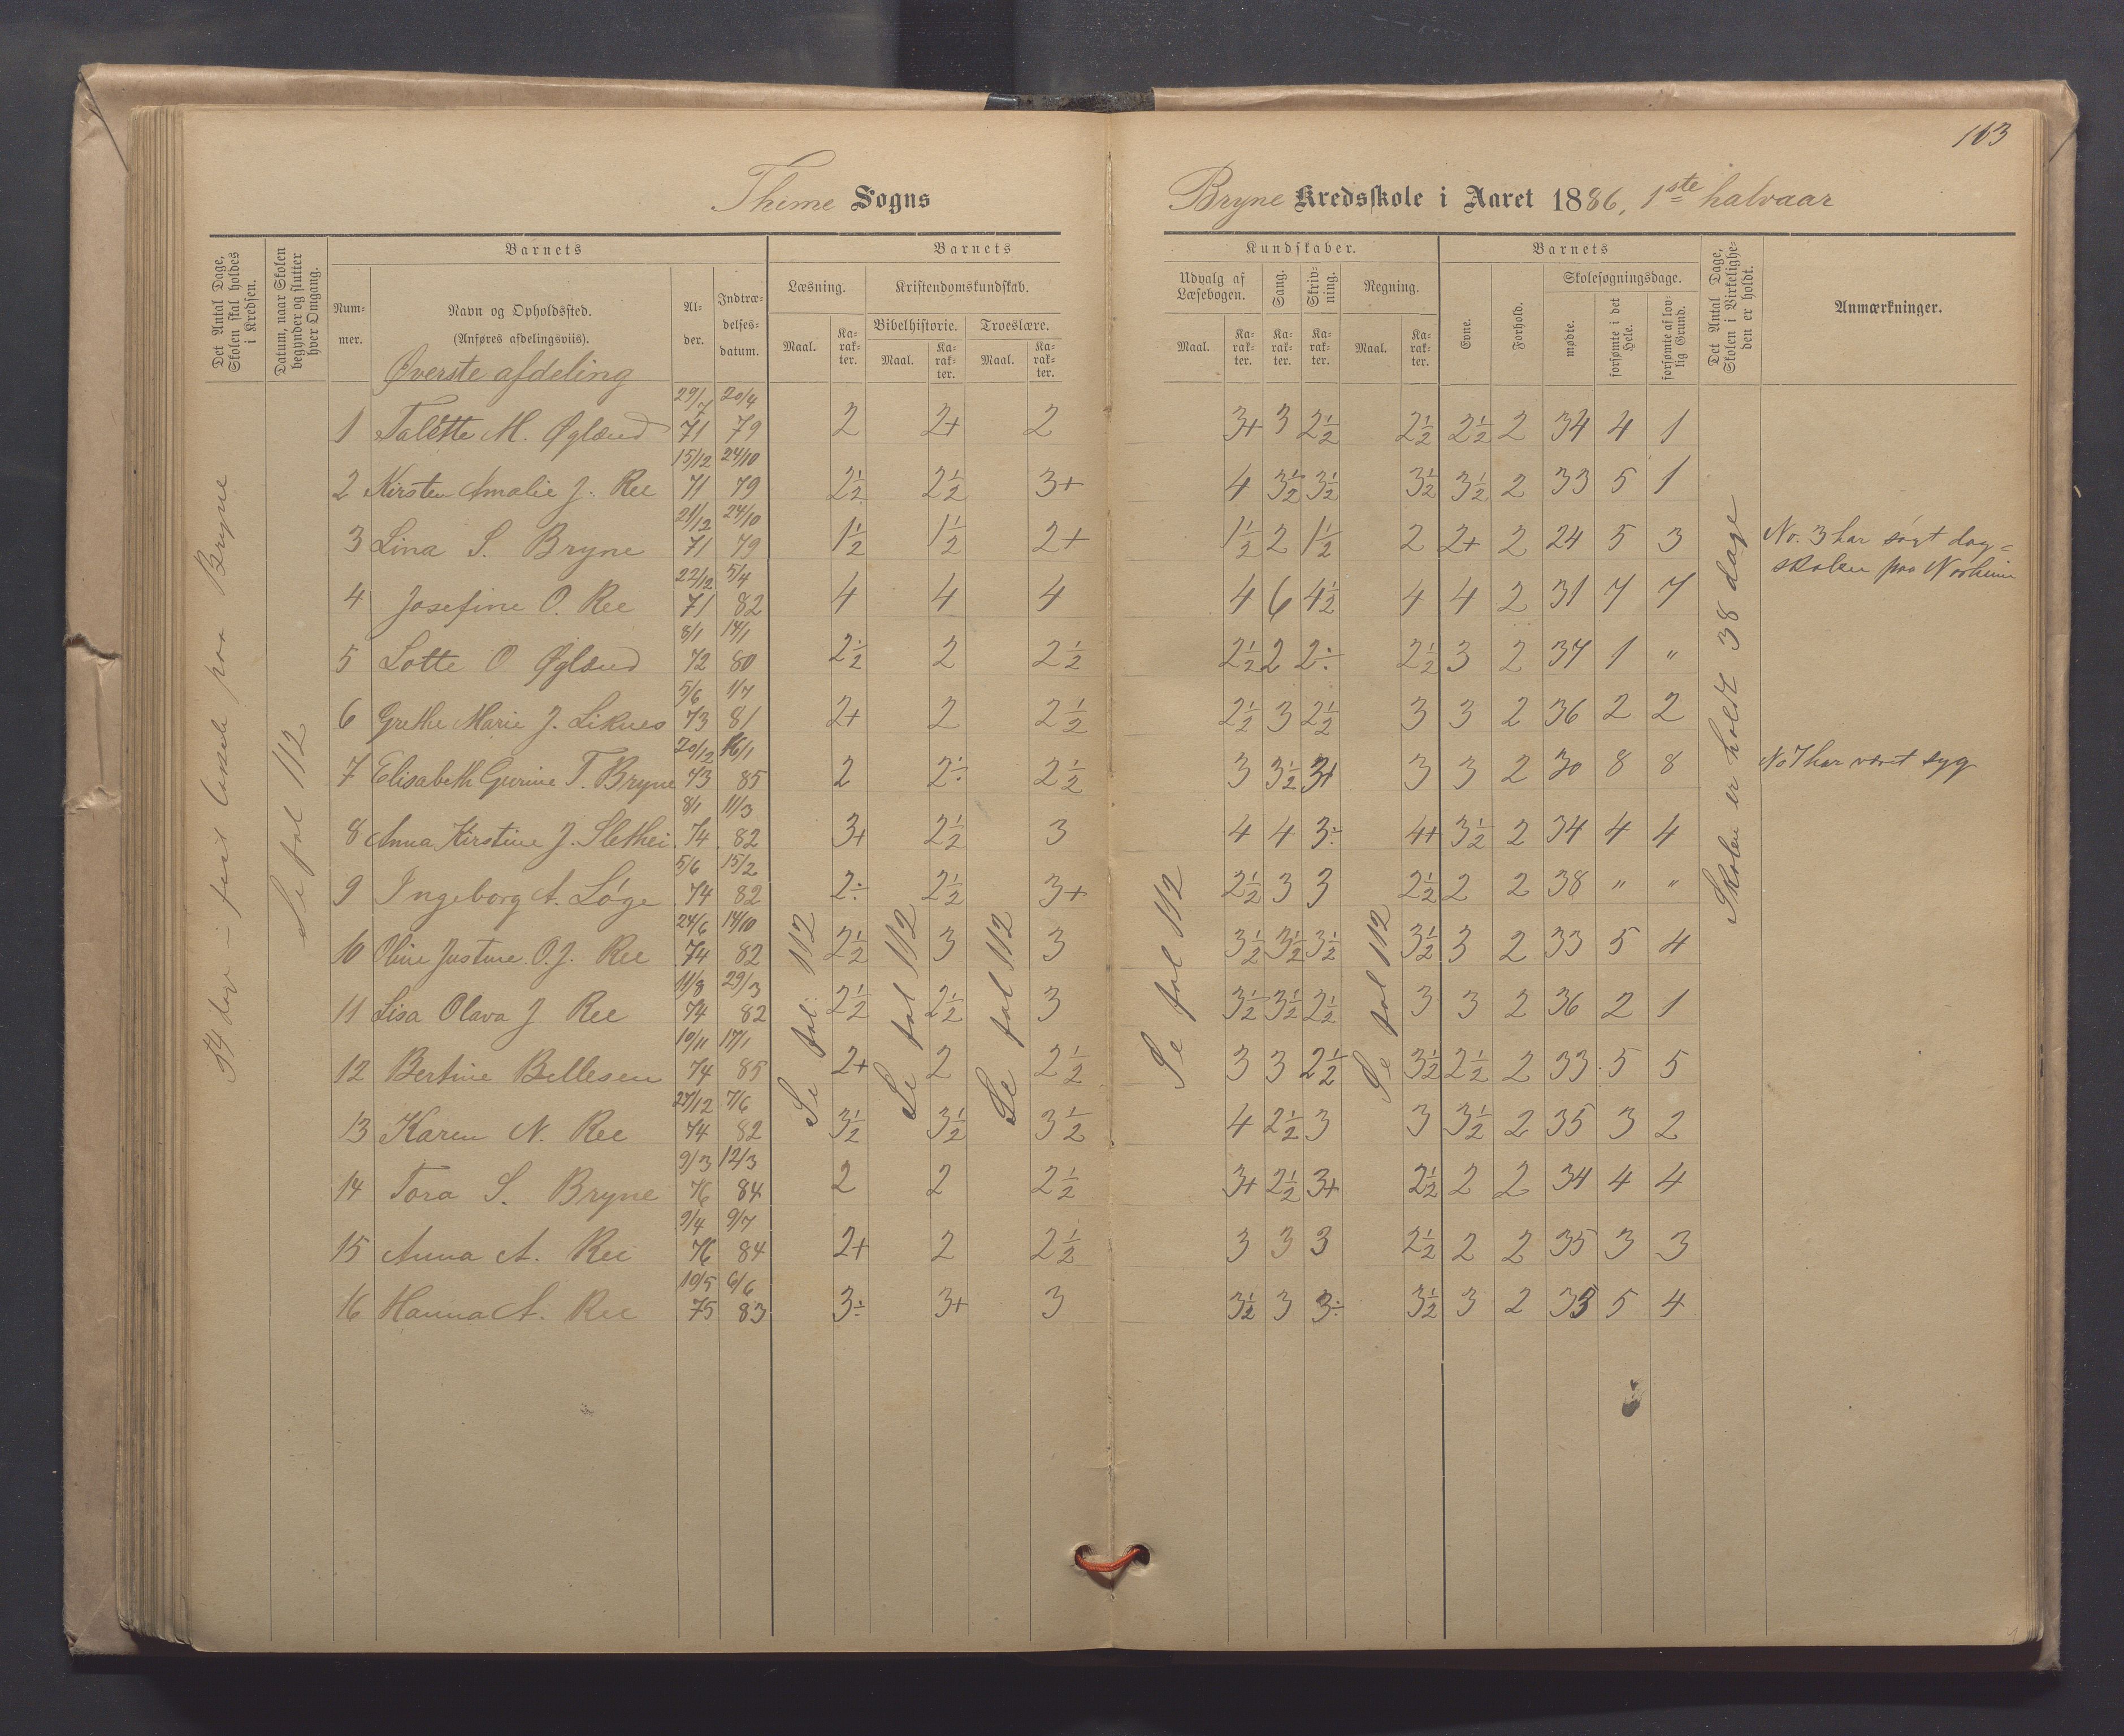 113
Thime Sogns Bryne Kredsskole i Aaret 1886, 1ste halvaar
Det Antal Dage, Skolen skal holdes i Kredsen.
Datum, naar Skolen begynder og slutter hver Omgang.
Barnets
Num- mer.
Navn og Opholdssted. (Anføres afdelingsviis).
Al- der.
Indtræ- delses- datum.
Barnets Kundskaber.
Læsning. Maal. Ka- rak- ter.
Kristendomskundskab.
Bibelhistorie. Maal. Ka- rak- ter.
Troeslære. Maal. Ka- rak- ter.
Udvalg af Læsebogen. Maal. Ka- rak- ter.
Sang. Ka- rak- ter.
Skriv- ning. Ka- rak- ter.
Regning. Maal. Ka- rak- ter.
Barnets
Evne.
Forhold.
Skolesøgningsdage.
mødte.
forsømte i det Hele.
forsømte af lov- lig Grund.
Det Antal Dage, Skolen i Virkelighe- den er holdt.
Anmærkninger.
Øverste afdeling
1 Talette M. Øglænd 29/7 71 20/4 79 2 2+ 2 3+ 3 2½ 2½ 2½ 2 34 4 1
2 Kirsten Amalie J. Ree 15/12 71 24/10 79 2½ 2½ 3+ 4 3½ 3½ 3½ 3½ 2 33 5 1
3 Lina S. Bryne 21/12 71 24/10 79 1½ 1½ 2+ 1½ 2 1½ 2 2+ 2 24 5 3 No. 3 har søgt dag=
skolen paa Norheim
4 Josefine O. Ree 22/12 71 5/4 82 4 4 4 4 6 4½ 4 4 2 31 7 7
5 Lotte O Øglænd 8/1 72 14/1 80 2½ 2 2½ 2½ 2 2÷ 2½ 3 2 37 1 "
6 Grethe Marie J. Liknes 5/6 73 1/7 81 2+ 2 2½ 2½ 3 2½ 3 3 2 36 2 2
7 Elisabeth Gurine T. Bryne 20/12 73 16/1 85 2 2÷ 2½ 3 3½ 3+ 3 3 2 30 8 8 No 7 har været syg
8 Anna Kirstine J. Slethei 8/1 74 11/3 82 3+ 2½ 3 4 4 3÷ 4+ 3½ 2 34 4 4
9 Ingeborg A. Løge 5/6 74 15/2 82 2÷ 2½ 3+ 2½ 3 3 2½ 2 2 38 " "
10 Oline Justine O.J. Ree 24/6 74 14/10 82 2½ 3 3 3½ 3½ 3½ 3½ 3 2 33 5 4
11 Lisa Olava J Ree 11/8 74 29/3 82 2½ 2½ 3 3½ 3½ 2½ 3 3 2 36 2 1
12 Bertine Bellesen 19/11 74 17/1 85 2+ 2 2½ 3 3 2½ 3½ 2½ 2 33 5 5
13 Karen N. Ree 27/12 74 7/6 82 3½ 3½ 3½ 4 2½ 3 3 3½ 2 35 3 2
14 Tora S. Bryne 9/3 76 12/3 84 2 2 2½ 3+ 2½ 3+ 2½ 2 2 34 4 4
15 Anna A. Ree 9/4 76 9/7 84 2+ 2 2½ 3 3 3 2½ 2 2 35 3 3
16 Hanna A. Ree 19/5 75 6/6 83 3÷ 3+ 3 3½ 3 3÷ 3½ 3 2 33 5 4
paa Bryne
Se fol 112
Se fol. 112
Se fol 112
Se fol 112
Se fol 112
Se fol 112
Skolen er holdt 38 dage